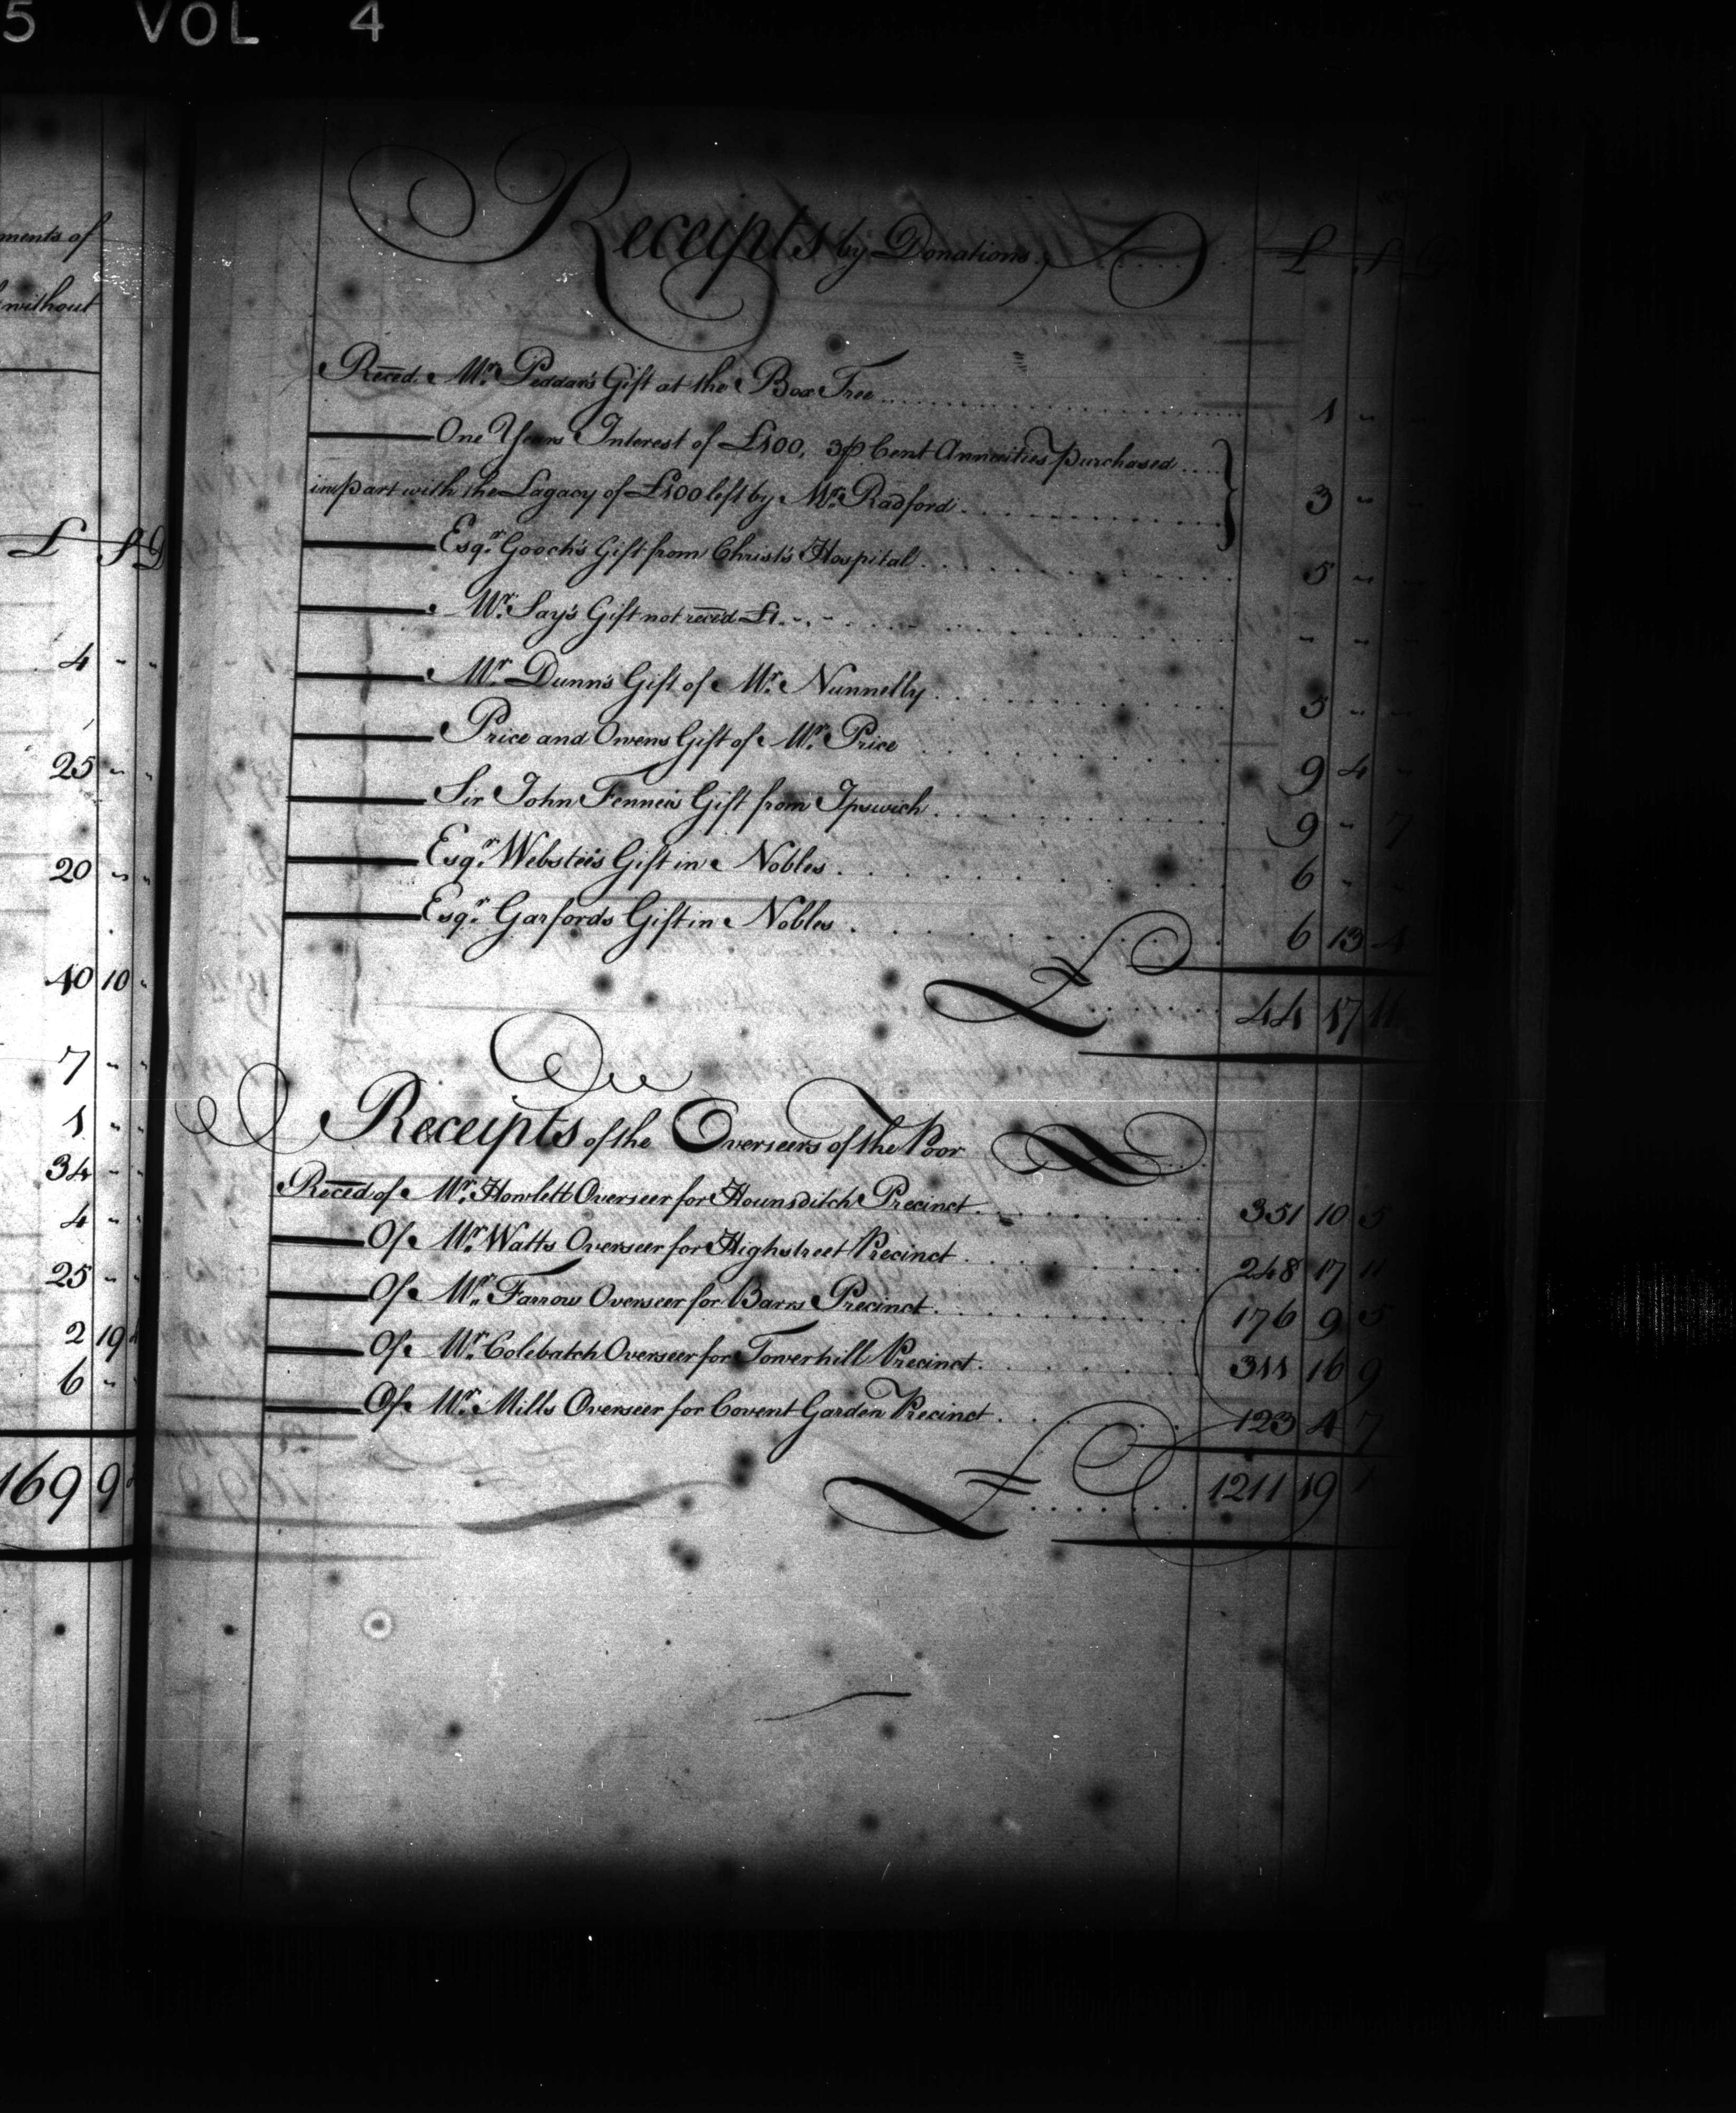 5 VOL 4
ments of
without
£ S D
4 " "
25 " "
20 " "
40 10 "
7 " "
1 " "
34 " "
4 " "
25 " "
2 19
6 "
169 9
Receipts by Donations £ S
Reced Mr. Peddar's Gift at the Box Tree 1 "
One Years Interest of £100, 3 ₱ Cent Annuities purchased
in part with the Lagacy of £100 left by Mr. Radford 3 "
Esqr. Gooch's Gift from Christ's Hospital 5 "
Mr. Say's Gift not reced £1. " " " "
Mr. Dunn's Gift of Mr. Nunnelly 5 "
Price and Owens Gift of Mr. Price 9 4 "
Sir John Fenner's Gift from Ipswich 9 " 7
Esqr. Webster's Gift in Nobles 6 "
Esqr. Garfords Gift in Nobles 6 13 4
£ 44 17 11
Receipts of the Overseers of the Poor
Reced of Mr. Howlett Overseer for Hounsditch Precinct 351 10 5
Of Mr. Watts Overseer for Highstreet Precinct 248 17 11
Of Mr. Farrow Overseer for Barrs Precinct 176 9 5
Of Mr. Colebatch Overseer for Towerhill Precinct 311 16 9
Of Mr. Mills Overseer for Covent Garden Precinct 123 4 7
£ 1211 19 1